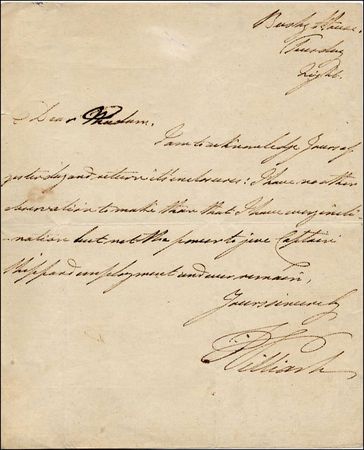 Bushy House
Thursday
Night.
Dear Madam.
I am to acknowledge yours of
yesterday and return its enclosures: I have no other
observation to make than that I have every incli
-nation but not the power to give Captain
Shippard employment and ever remain,
Yours sincerely
William